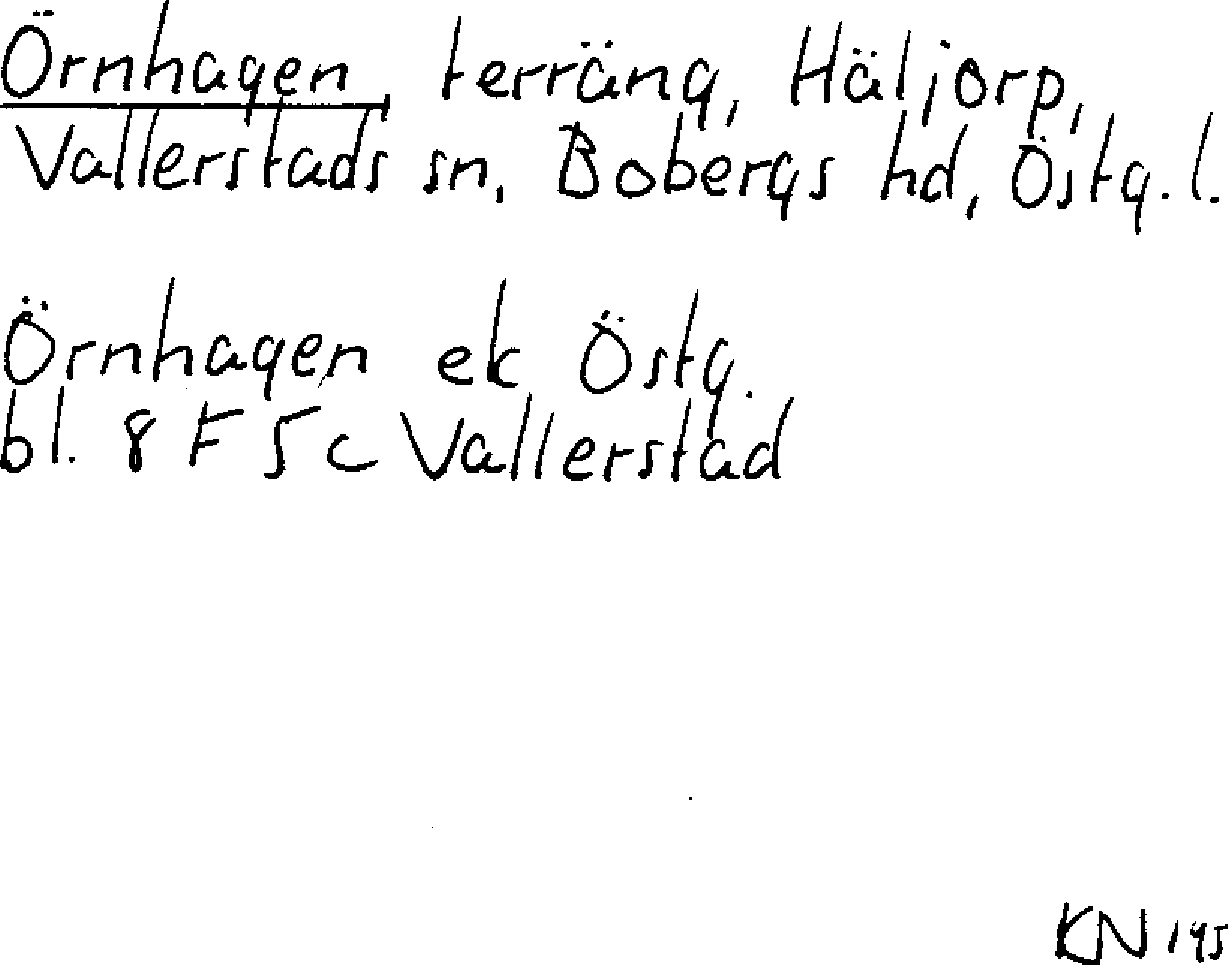 Örnhagen, terräng, Häljorp,
Vallerstads sn, Bobergs hd, Östg. l.
Örnhagen ek Östg.
bl. 8 F 5c Vallerstad
KN 195